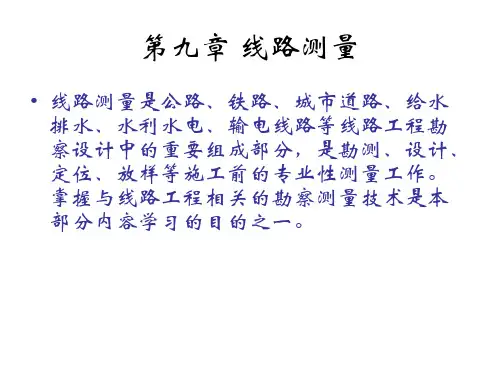 第九章 线路测量
• 线路测量是公路、铁路、城市道路、给水
排水、水利水电、输电线路等线路工程勘
察设计中的重要组成部分，是勘测、设计、
定位、放样等施工前的专业性测量工作。
掌握与线路工程相关的勘察测量技术是本
部分内容学习的目的之一。